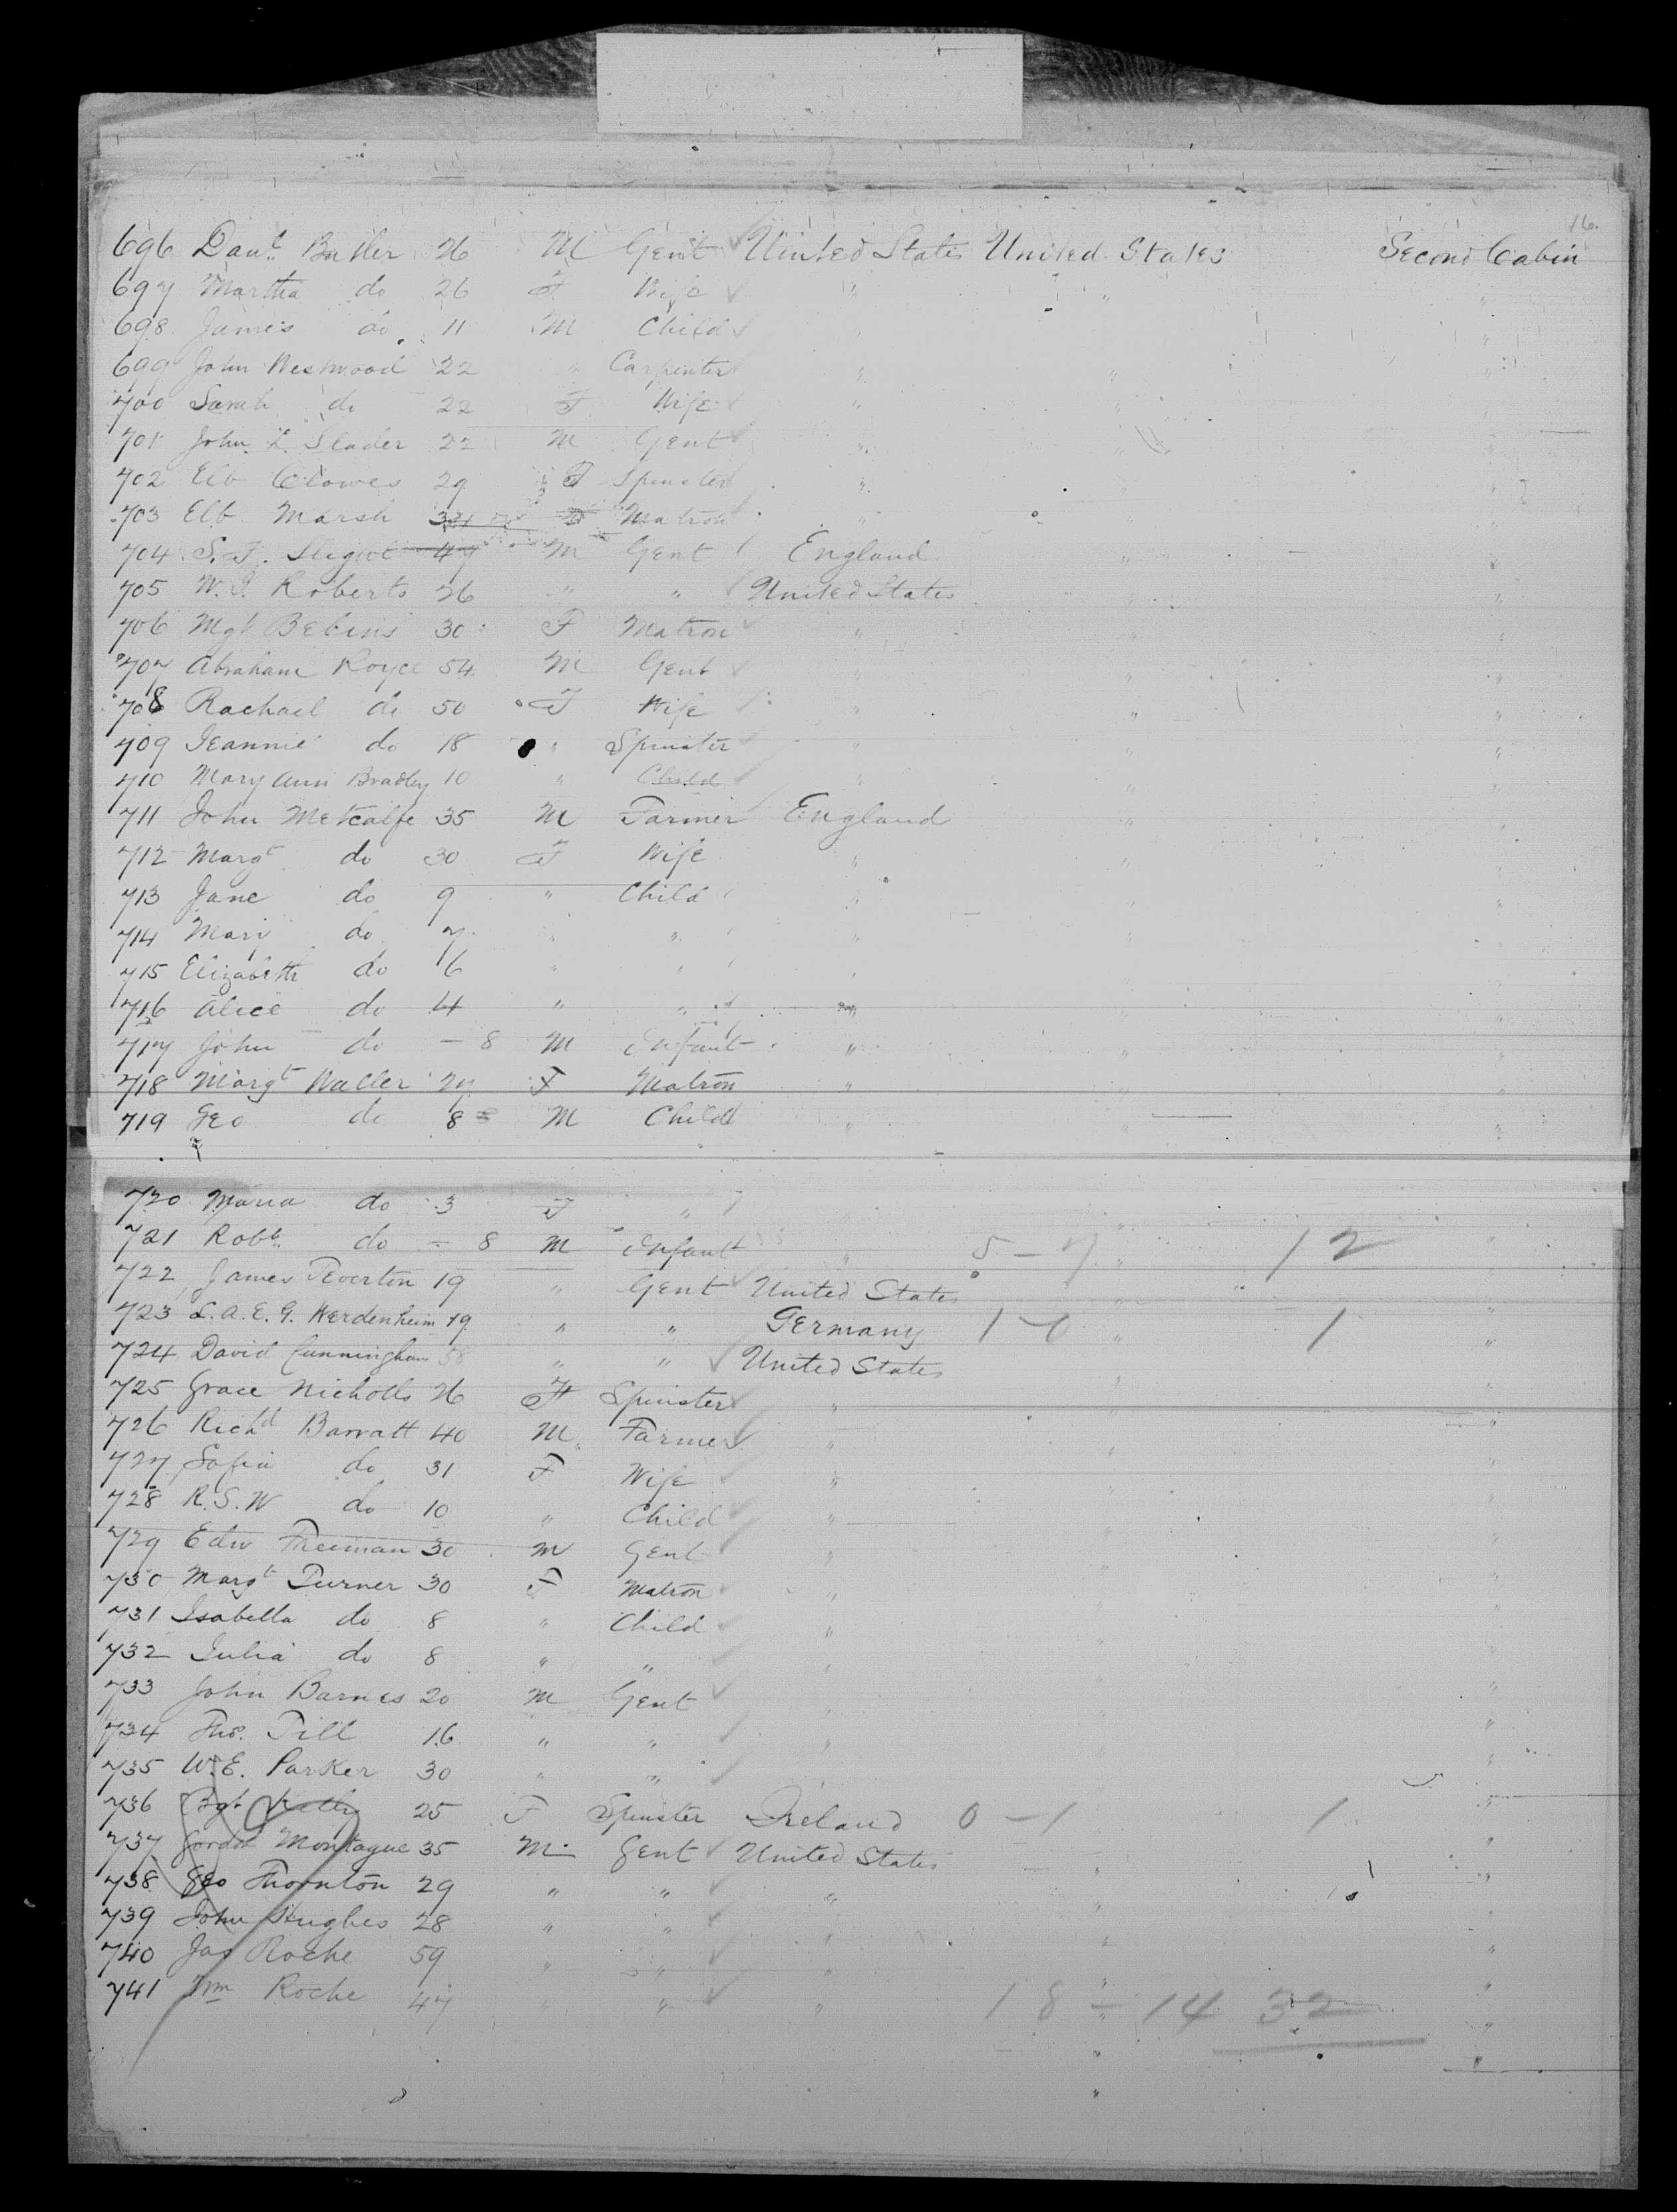 16.
696 Danl. Butler 26 M Gent United States United States Second Cabin
697 Martha do 26 F Wife " " "
698 James do 11 M Child " "
699 John Westwood 22 " Carpenter " " "
700 Sarah do 22 F Wife " "
701 John L. Slader 22 M Gent " " "
702 Elb Clowes 29 F Spinster " " "
703 Elb Marsh F Matron " "
704 S. J. 47 M Gent England " "
705 W. J. Roberts 26 " " United States " "
706 Mgt Bebins 30 F Matron " " "
707 Abraham Royce 54 M Gent " "
708 Rachael do 50 F Wife " " "
709 Jeannie do 18 " Spinster " " "
710 Mary Ann Bradley 10 " Child " " "
711 John Metcalfe 35 M Farmer England " "
712 Margt do 30 F Wife " " "
713 Jane do 9 " Child " "
714 Mary do 7 " " " "
715 Elizabeth do 6 " " " "
716 Alice do 4 " " " "
717 John do - 8 M Infant " "
718 Margt Waller 27 F Matron " " "
719 Geo do 8 M Child " "
720 Maria do 3 F " "
721 Robt. do - 8 M Infant " 5 - 7 " 12 "
722 James Peverton 19 " Gent United States " "
723 L. A. E. G. Werdenheim 19 " " Germany 1 - 0 " 1 "
724 David Cunningham 58 " " United States "
725 Grace Nicholls 26 F Spinster " " "
726 Richd Barratt 40 M Farmer " " "
727 Sofia do 31 F Wife " " "
728 R. S. W do 10 " Child " " "
729 Edw Freeman 30 M Gent " " "
730 Margt Turner 30 F Matron " "
731 Isabella do 8 " Child " " "
732 Julia do 8 " " " " "
733 John Barnes 20 M Gent " "
734 Thos. Till 16 " " " "
735 W. E. Parker 30 " " "
736 Bgt Kelly 25 F Spinster Ireland 0 - 1 1 "
737 Gordon Montague 35 M Gent United States " "
738 Geo Thornton 29 " " " "
739 John Hughes 28 " " " "
740 Jas Roche 59 " " " " "
741 Wm Roche 47 " " " 18 - 14 32 "